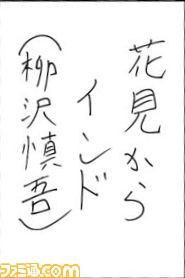 花見から
インド
(柳沢慎吾)
ファミ通.com